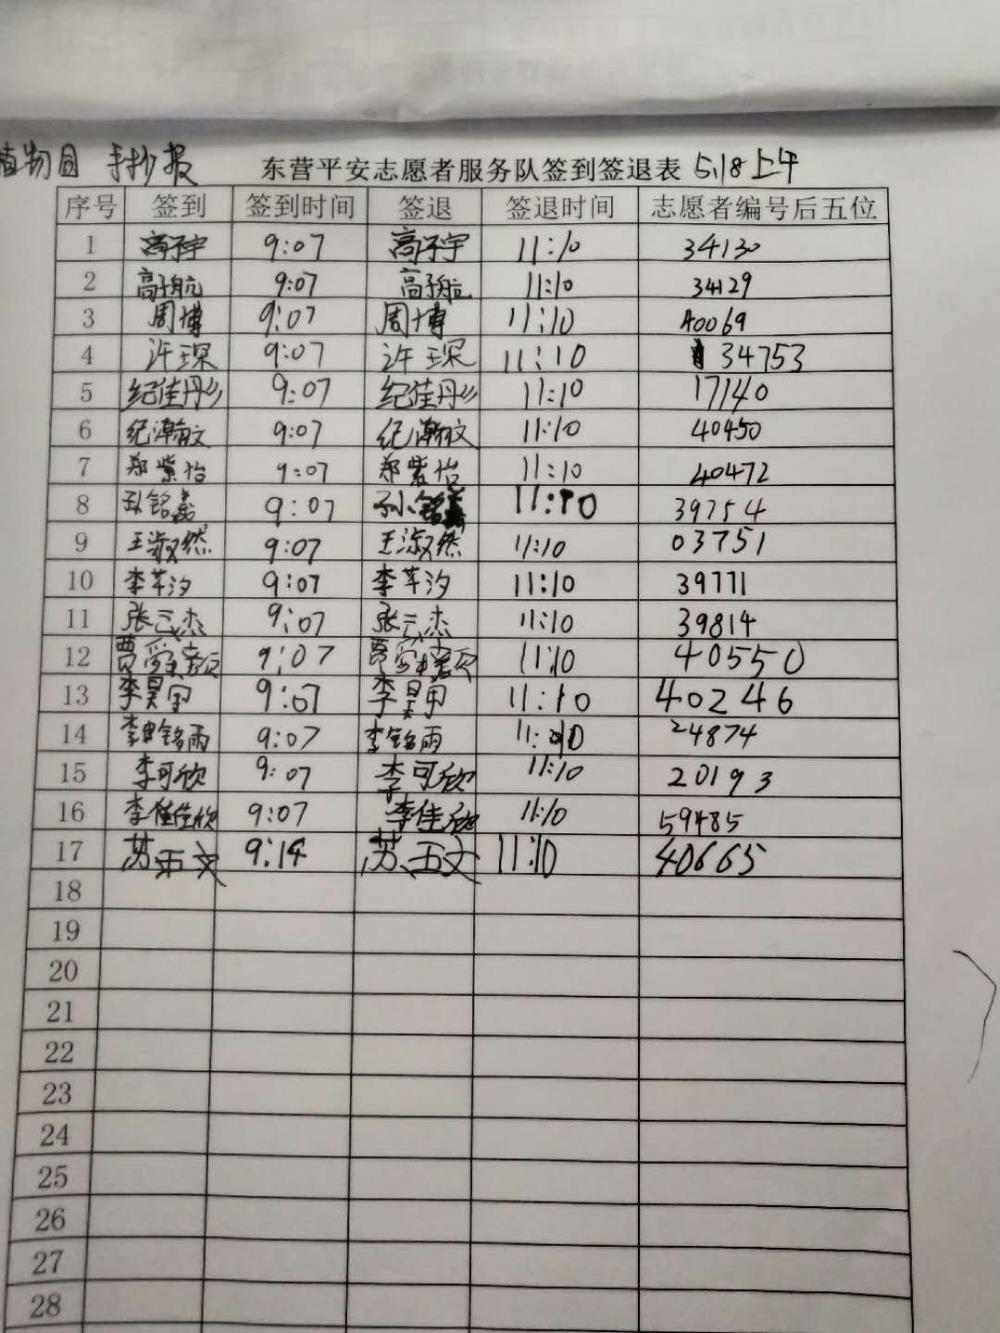 植物园 手抄报 东营平安志愿者服务队签到签退表 5.18上午
序号 签到 签到时间 签退 签退时间 志愿者编号后五位
1 高子宇 9:07 高子宇 11:10 34130
2 高子航 9:07 高子航 11:10 34129
3 周博 9:07 周博 11:10 40069
4 许琛 9:07 许琛 11:10 34753
5 纪佳彤 9:07 纪佳彤 11:10 17140
6 纪瀚文 9:07 纪瀚文 11:10 40450
7 郑紫怡 9:07 郑紫怡 11:10 40472
8 孙铭 9:07 孙铭 11:10 39754
9 王淑然 9:07 王淑然 11:10 03751
10 李芊汐 9:07 李芊汐 11:10 39771
11 张云杰 9:07 张云杰 11:10 39814
12 贾 9:07 贾 11:10 405550
13 李昊 9:07 李昊 11:10 40246
14 李铭雨 9:07 李铭雨 11:10 24874
15 李可欣 9:07 李可欣 11:10 20193
16 李佳欣 9:07 李佳欣 11:10 59485
17 苏玉文 9:14 苏玉文 11:10 40665
18
19
20
21
22
23
24
25
26
27
28